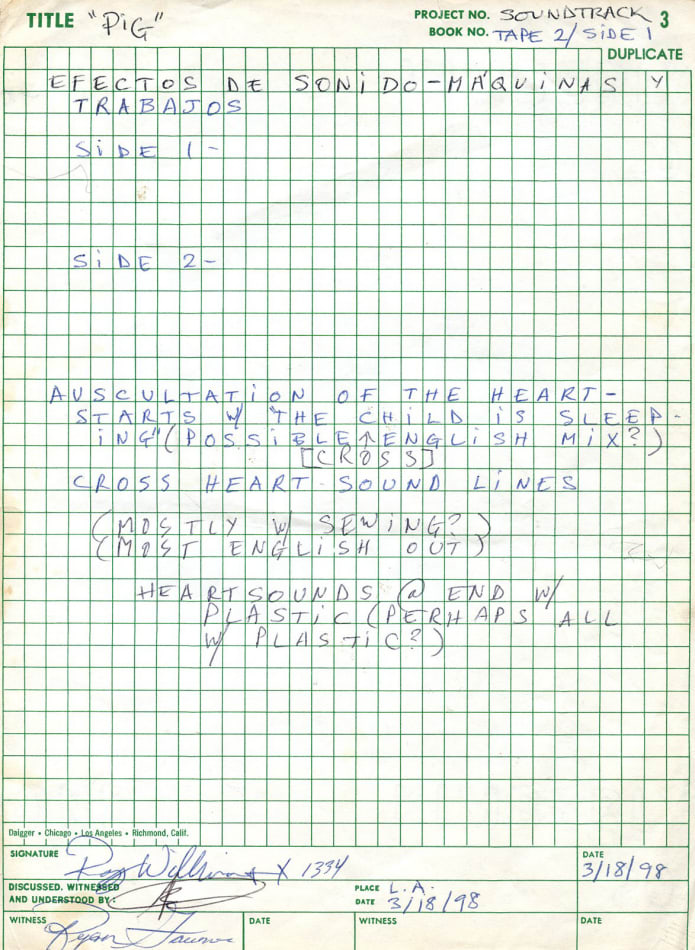 TITLE "PiG"
PROJECT NO. SOUNDTRACK 3
BOOK NO. TAPE 2/SiDE 1
DUPLICATE
EFECTOS DE SONiDO-MÁQUiNAS Y
TRABAJOS
SiDE 1-
SiDE 2-
AUSCULTATiON OF THE HEART-
STARTS W/ "THE CHiLD iS SLEEP-
iNG" (POSSiBLE ↑ ENGLiSH MiX?)
[CROSS]
CROSS HEART-SOUND LiNES
(MOSTLY W/ SEWiNG?)
(MOST ENGLiSH OUT)
HEARTSOUNDS @ END W/
PLASTiC (PERHAPS ALL
W/ PLASTiC?)
Daigger • Chicago • Los Angeles • Richmond, Calif.
SIGNATURE X 1334
DATE
3/18/98
DISCUSSED. WITNESSED
AND UNDERSTOOD BY:
PLACE L.A.
DATE 3/18/98
WITNESS
DATE
WITNESS
DATE